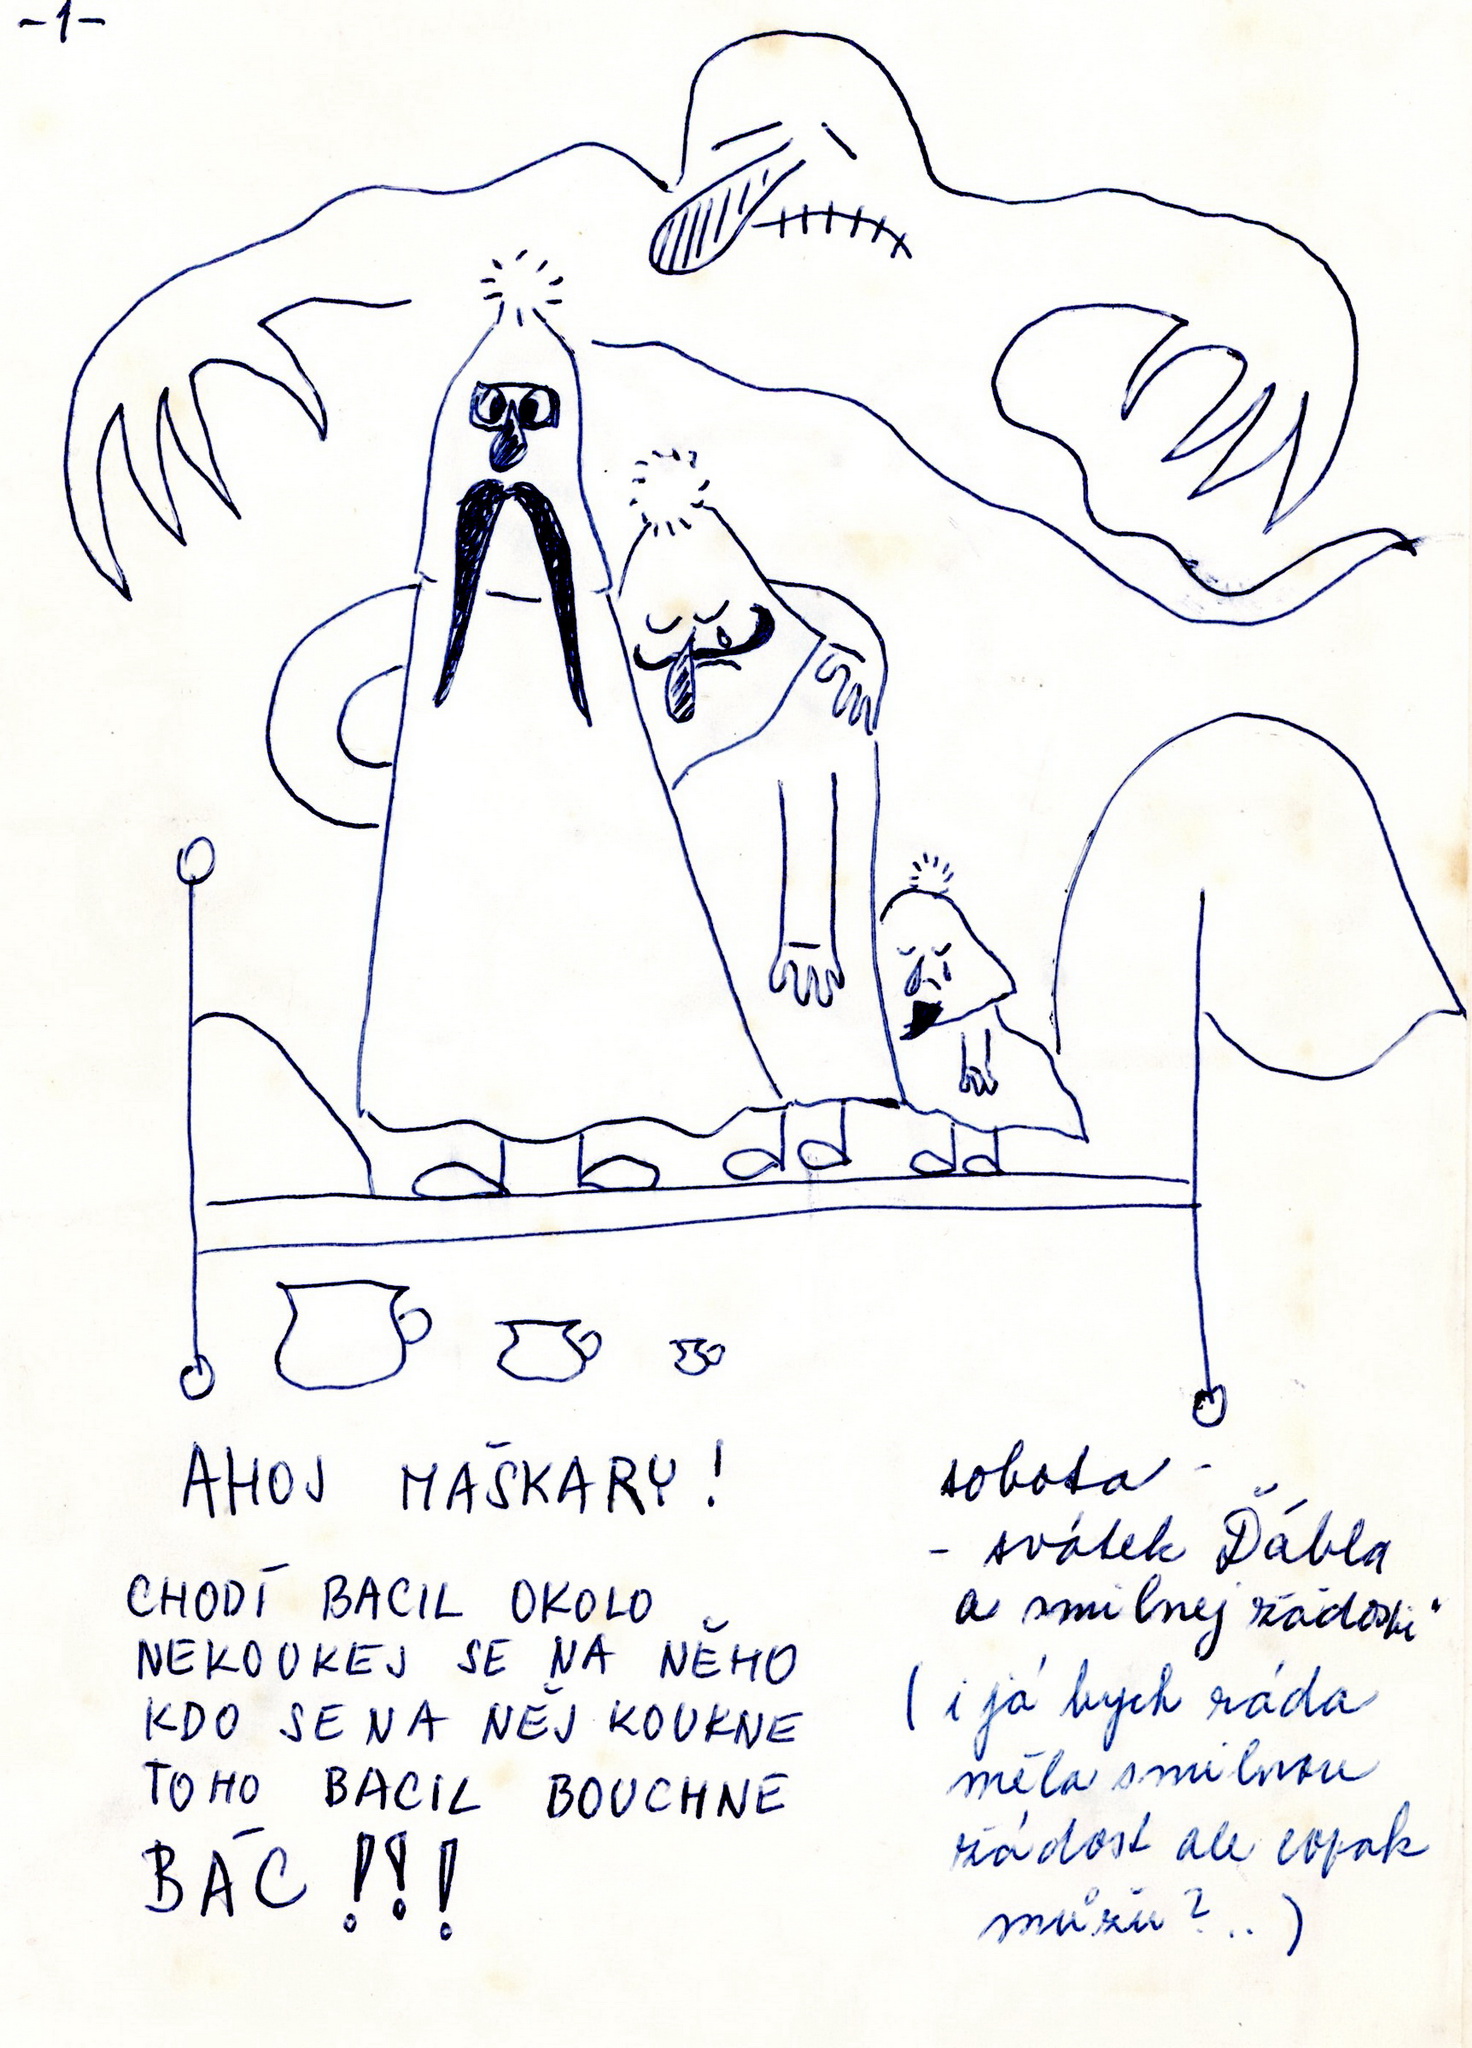 -1-
AHOJ MAŠKARY!
CHODÍ BACIL OKOLO
NEKOUKEJ SE NA NĚHO
KDO SE NA NĚJ KOUKNE
TOHO BACIL BOUCHNE
BÁC!!!
sobota -
- svátek Ďábla
a smilnej žádosti"
(i já bych ráda
měla smilnou
žádost ale copak
můžu?..)